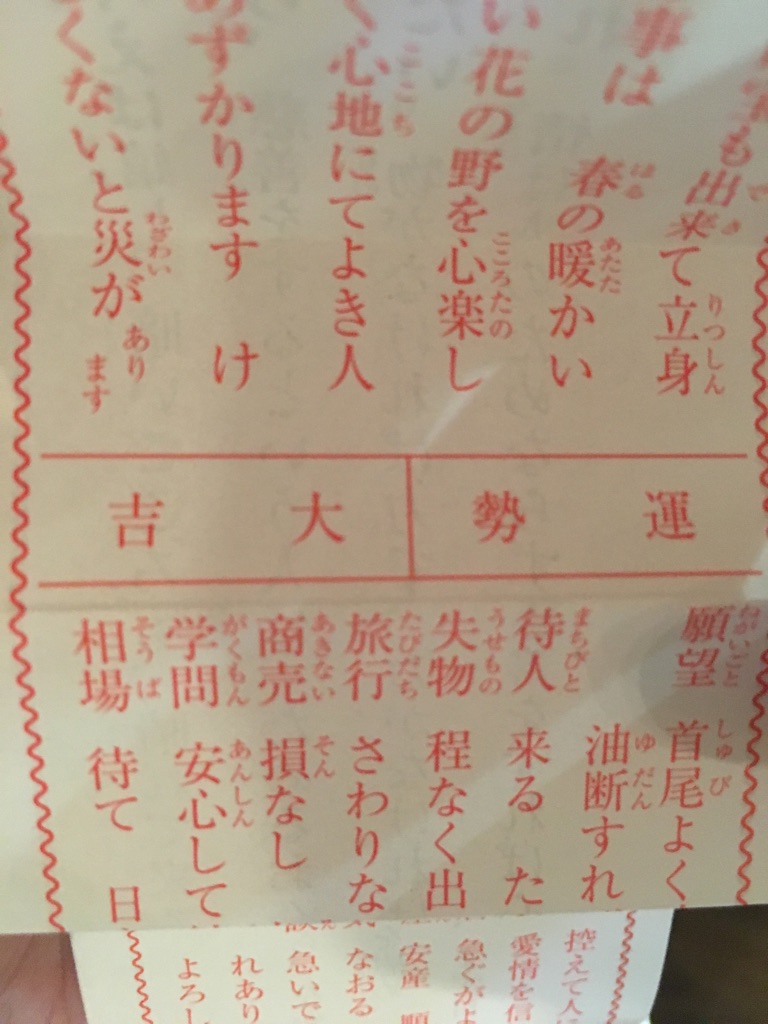 も出来て立身
事は 春の暖かい
い花の野を心楽し
く心地にてよき人
あずかります け
くないと災があり
ます
運勢 大吉
願望 首尾よく
油断すれ
待人 来る た
失物 程なく出
旅行 さわりな
商売 損なし
学問 安心して
相場 待て 日
控えて人
愛情を信
急ぐがよ
安産
なおる
急いで
れあり
よろし